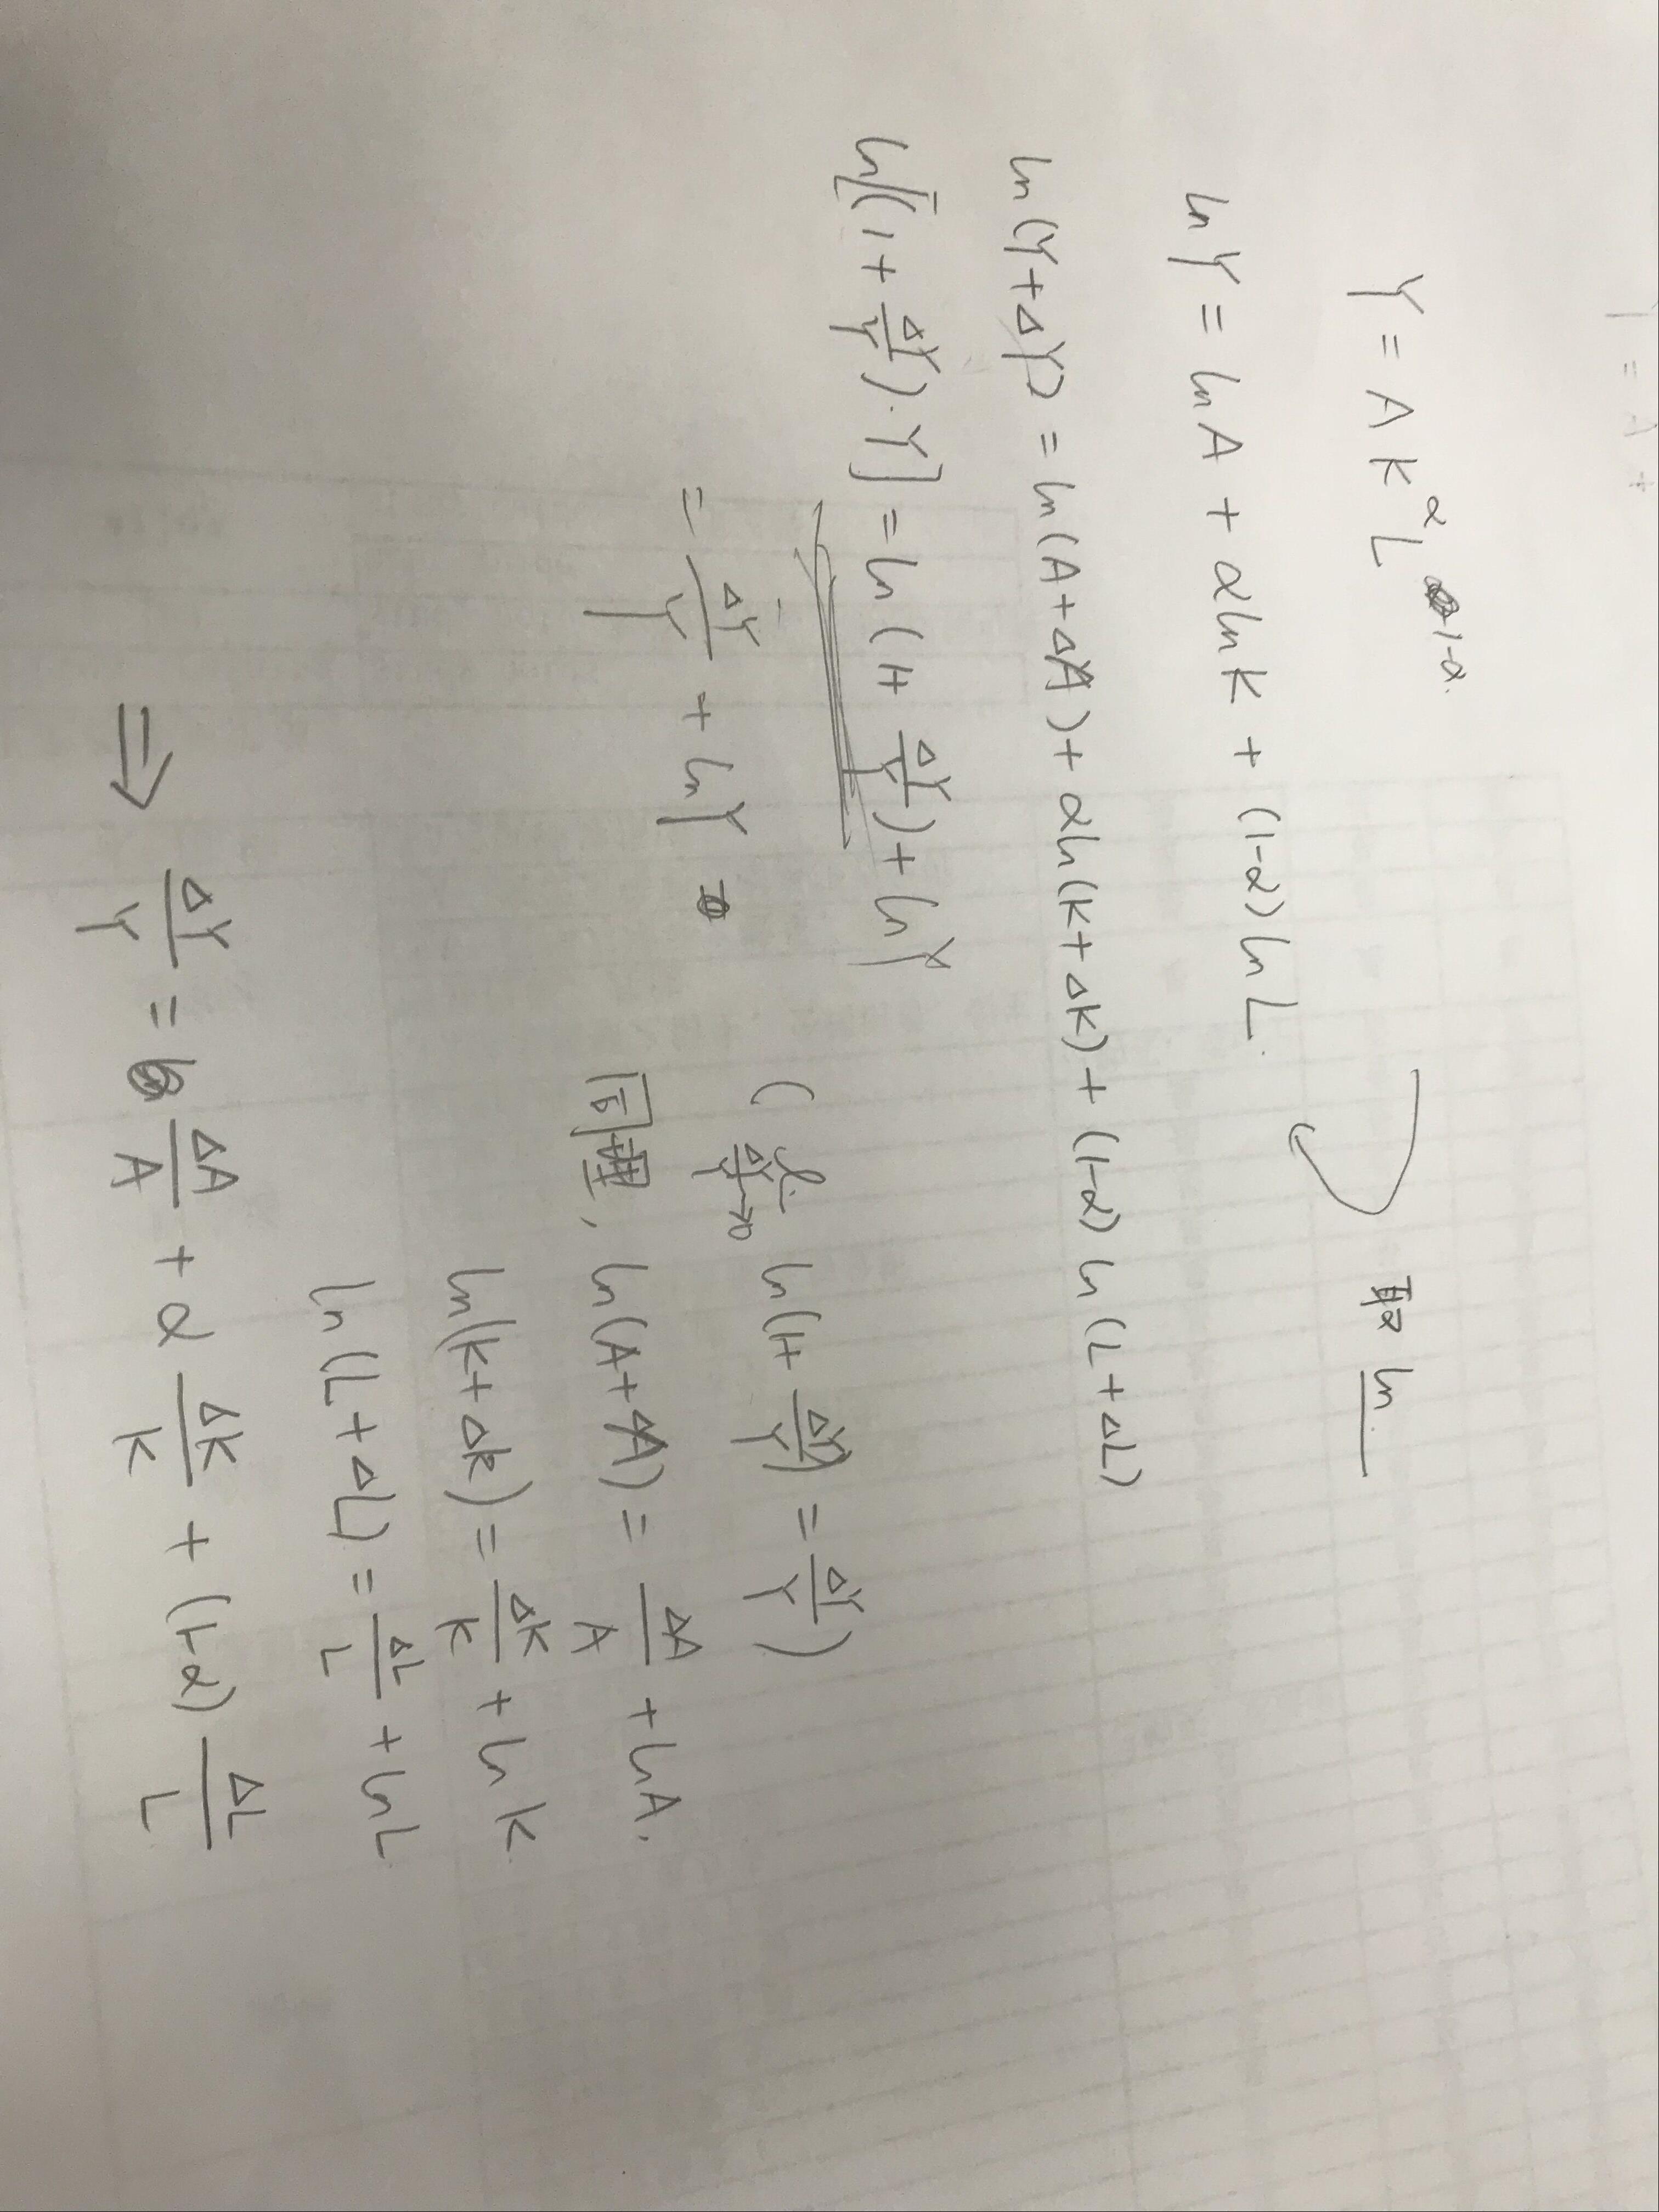 Y = A K^α L^1-α.
取 ln
ln Y = ln A + α ln K + (1-α) ln L.
ln (Y+ΔY) = ln (A+ΔA) + α ln (K+ΔK) + (1-α) ln (L+ΔL)
ln[(1+ ΔY/Y)·Y] = ln (1+ ΔY/Y) + ln Y
= ΔY/Y + ln Y
( ΔY/Y→0 ln(1+ ΔY/Y) = ΔY/Y )
同理, ln (A+ΔA) = ΔA/A + ln A.
ln(K+ΔK) = ΔK/K + ln K
ln (L+ΔL) = ΔL/L + ln L
⇒ ΔY/Y = ΔA/A + α ΔK/K + (1-α) ΔL/L